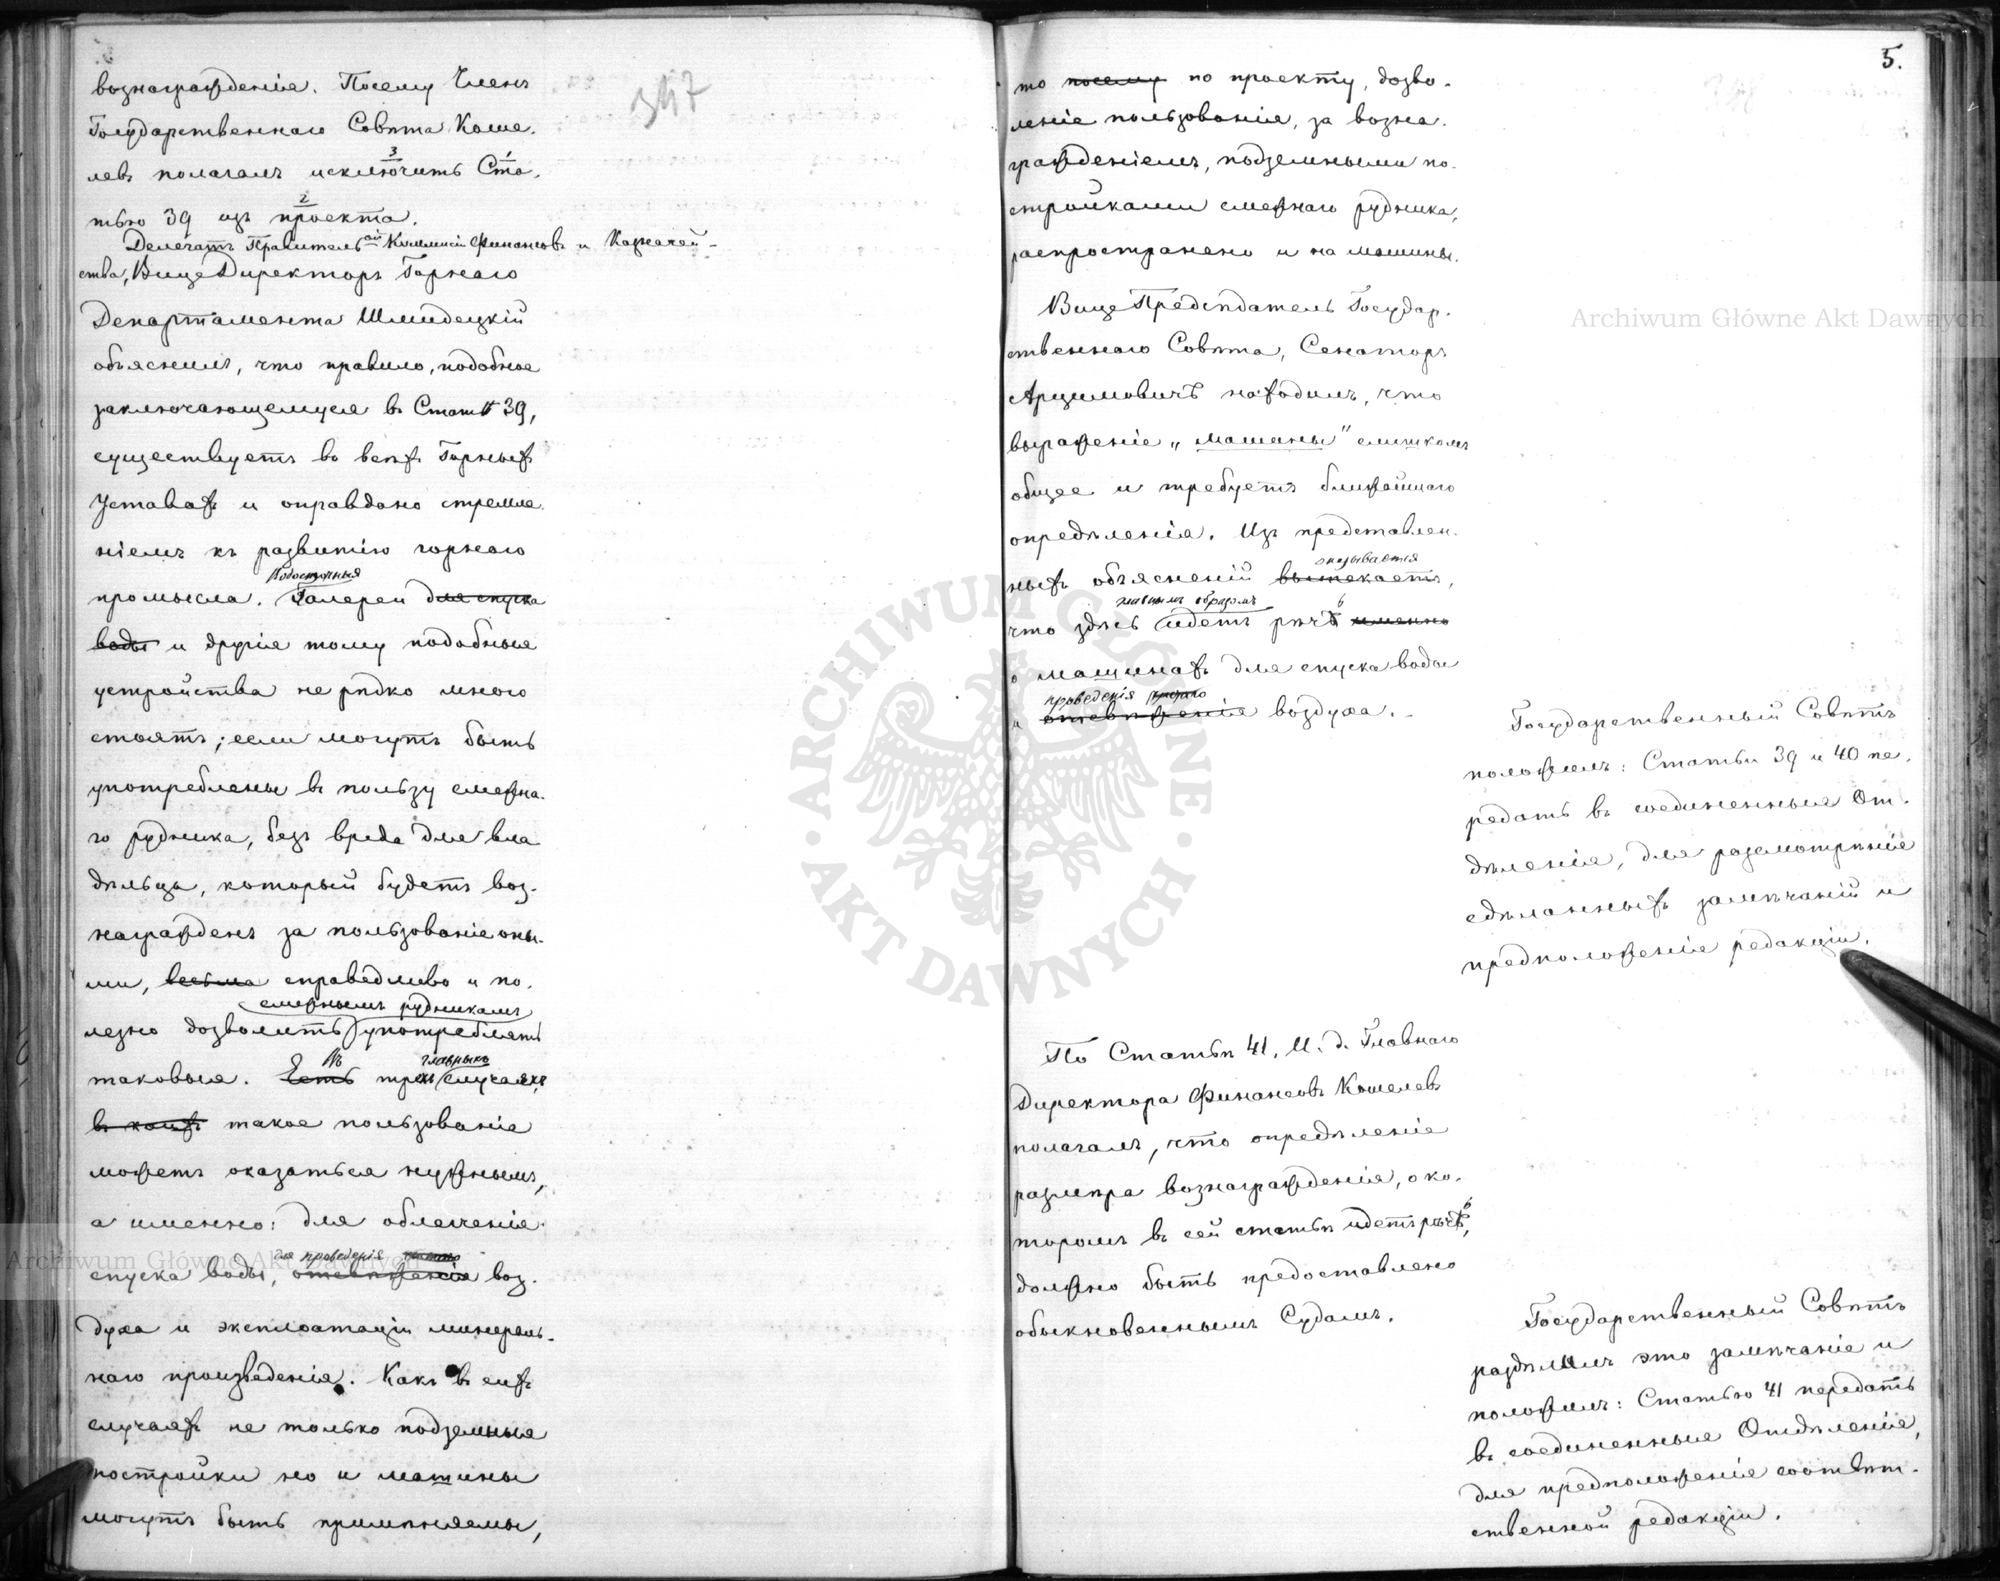 347
вознагражденія. Посему Членъ
Государственнаго Совѣта Коше-
левъ полагалъ исключить Ста-
3
тью 39 изъ проекта.
2
Делегатъ Правитель.ой Коммисіи Финансовъ и Казначей-
ства, Вице Директоръ Горнаго
Департамента Шмидецкій
объяснилъ, что правило, подобное
заключающемуся въ Статьѣ 39,
существуетъ во всѣхъ Горныхъ
Уставахъ и оправдано стремле-
ніемъ къ развитію горнаго
Водосточныя
промысла. Галереи для спуска
воды и другія тому подобныя
устройства не рѣдко много
стоятъ; если могутъ быть
употреблены въ пользу смежна-
го рудника, безъ вреда для вла
дѣльца, который будетъ воз-
награжденъ за пользованіе оны-
ми, весьма справедливо и по-
смежнымъ рудникамъ
лезно дозволить употреблять
Въ главныхъ
таковыя. Есть трехъ случаяхъ,
въ коихъ такое пользованіе
можетъ оказаться нужнымъ,
а именно: для облегченія
для проведенія
спуска воды, отвѣтвленія воз-
духа и эксплоатаціи минераль-
наго произведенія. Какъ въ сихъ
случаяхъ не только подземныя
постройки но и машины
могутъ быть примѣняемы,
5.
то посему по проекту, дозво-
леніе пользованія, за возна-
гражденіемъ, подземными по-
стройками смежнаго рудника,
распространено и на машины.
Вице Предсѣдатель Государ-
ственнаго Совѣта, Сенаторъ
Арцимовичъ находилъ, что
выраженіе „машины" слишкомъ
общее и требуетъ ближайшаго
опредѣленія. Изъ представлен-
оказывается
ныхъ объясненій вытекаетъ,
главнымъ образомъ
что здѣсь идетъ рѣчь именно
о машинахъ для спуска воды
проведенія
и отвѣтвленія воздуха.
Государственный Совѣтъ
положилъ: Статьи 39 и 40 пе-
редать въ соединенныя От-
дѣленія, для розсмотрѣнія
сдѣланныхъ замѣчаній и
предположенія редакціи.
По Статьѣ 41, И. д. Главнаго
Директора Финансовъ Кошелевъ
полагалъ, что опредѣленіе
размѣра вознагражденія, о ко-
торомъ въ сей статьѣ идетъ рѣчь,
должно быть предоставлено
обыкновеннымъ Судамъ.
Государственный Совѣтъ
раздѣлилъ это замѣчаніе и
положилъ: Статью 41 передать
въ соединенныя Отдѣленія,
для предположенія соотвѣт-
ственной редакціи.
Archiwum Główne Akt Dawnych
Archiwum Główne Akt Dawnych
ARCHIWUM GŁÓWNE · AKT DAWNYCH ·